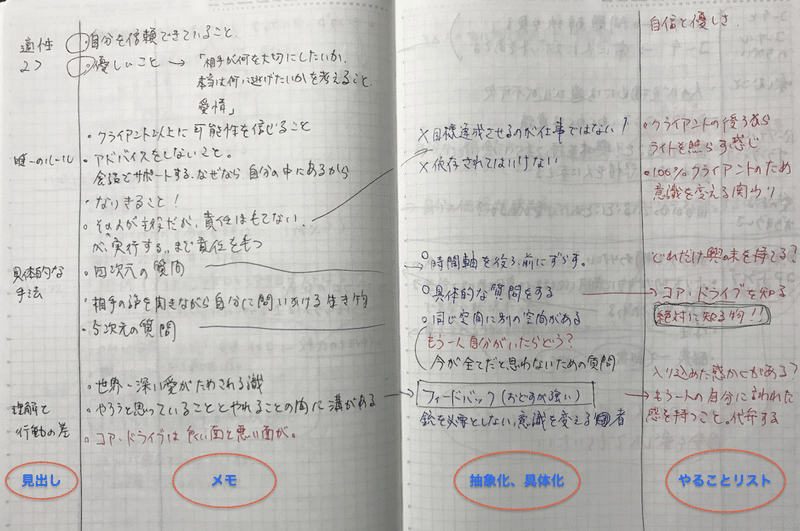 適性
2つ
自分を信頼できていること。
優しいこと → 「相手が何を大切にしたいか、
本当は何に逃げたいかを考えること。
愛情」
唯一のルール
・クライアント以上に可能性を信じること
・アドバイスをしないこと。
会話でサポートする。なぜなら自分の中にあるから
・なりきること!
・その人が主役だが、責任はもてない。
が、実行する、まで責任をもつ
具体的な
手法
・四次元の質問
・相手の話を聞きながら自分に問いかける生き物
・5次元の質問
理解と
行動の差
・世界一深い愛がためされる
・やろうと思っていることとやれることの間に溝がある
・コア・ドライブは良い面と悪い面が。
×目標達成させるのが仕事ではない!
×依存されてはいけない
時間軸を後ろ、前にずらす。
具体的な質問をする
同じ空間に別の空間がある
もう一人自分がいたらどう?
今が全てだと思わないための質問
フィードバック(おとすが強い)
銃を必要としない、意識を変える 者
自信と優しさ
・クライアントの後ろから
ライトを照らす感じ
・100%クライアントのため
意識を変える関わり
どれだけ興味を持てる?
→コア・ドライブを知る
絶対に知る物!!
入り込めた感がある?
→もう一人の自分に言われた
感を持つこと。代弁する
見出し
メモ
抽象化、具体化
やることリスト